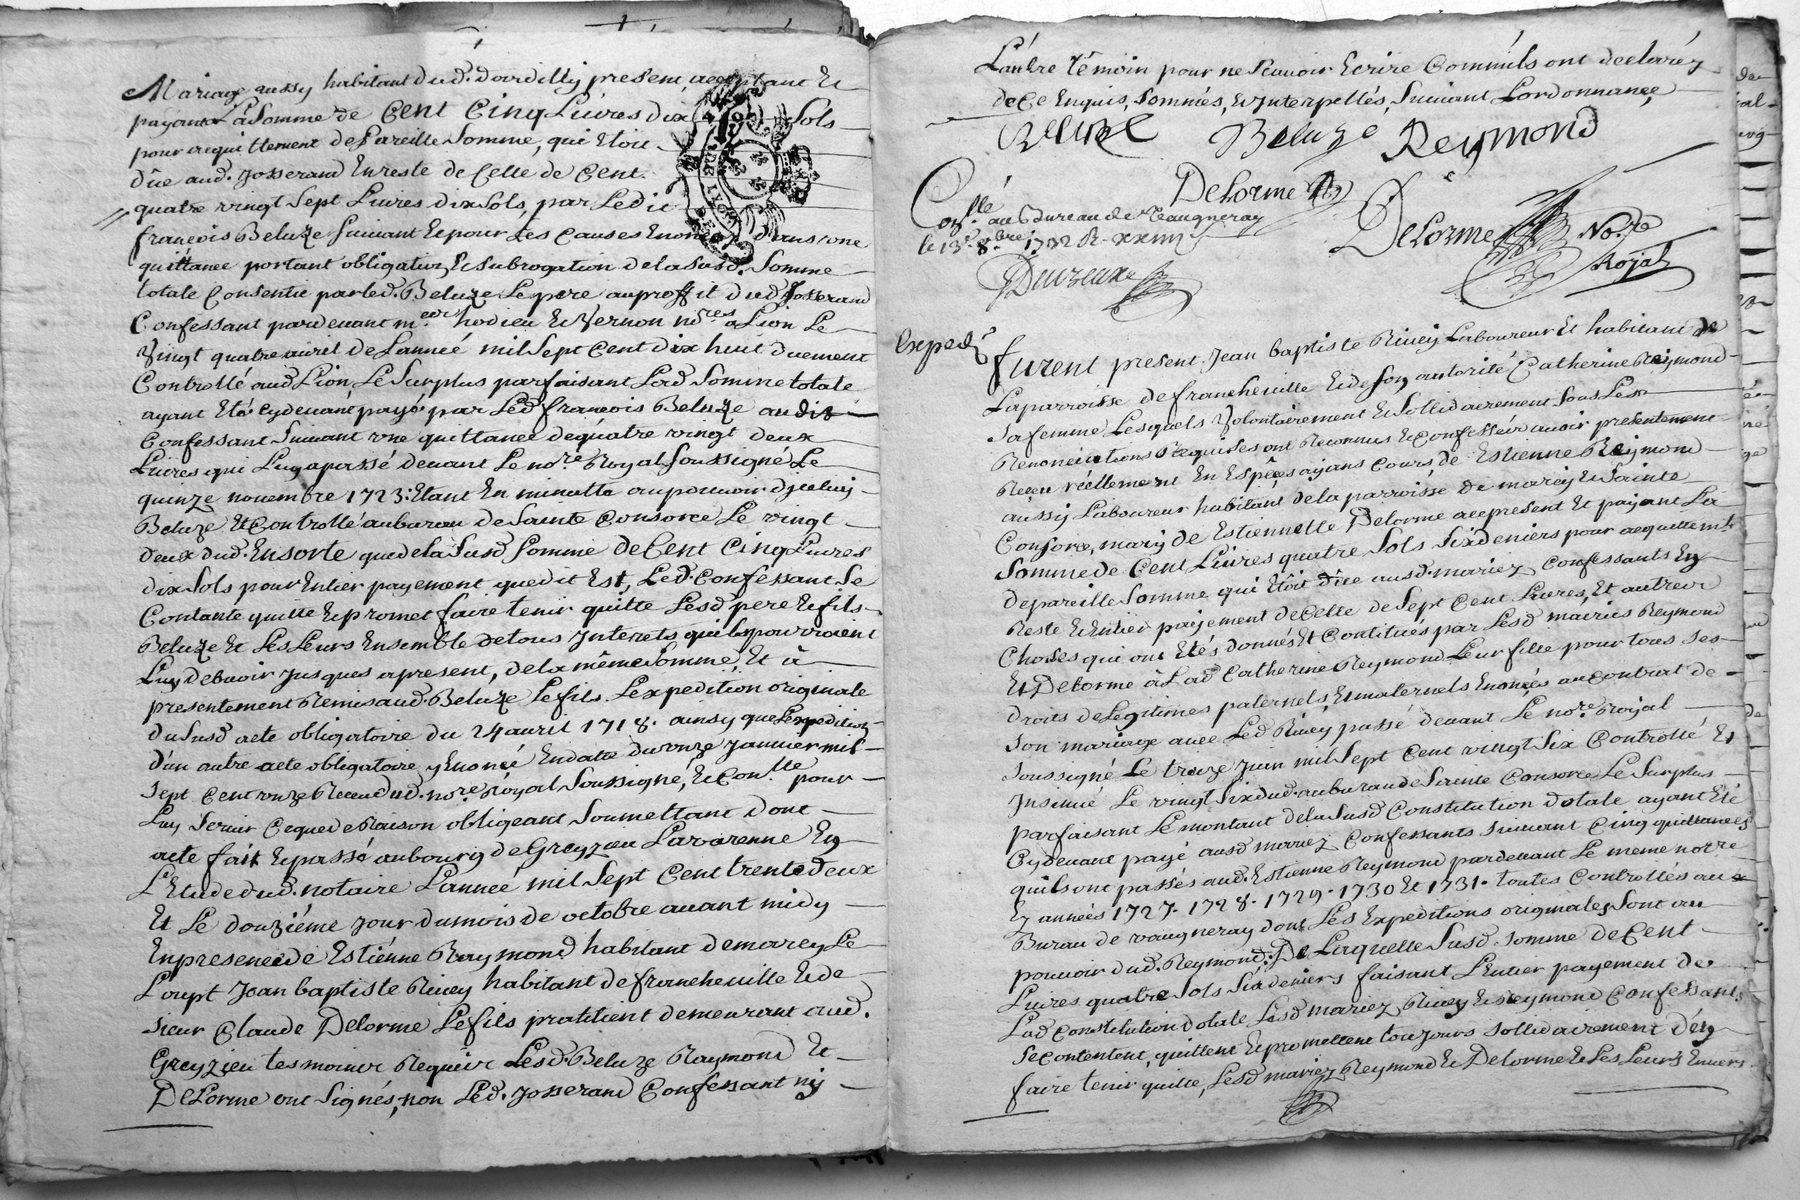 Mariage aussy habitant dud. dardilly present, acceptant et
payant La Somme de Cent Cinq Livres dix Sols
pour acquittement de Pareille Somme, qui Etoit
düe aud. Josserand En reste de Celle de Cent
quatre vingt Sept Livres dix Sols, par Led
françois Beluze Suivant Et pour Les Causes Enoncez dans une
quittance portant obligation Et Subrogation de la Susd. Somme
totale Consentie par led. Beluze Le pere au proffit dud Josserand
Confessant pardevant hodieu Et Vernon nores a Lion Le
Vingt quatre avril de L'année mil Sept Cent dix huit duement
Controllé aud Lion, Le Surplus parfaisant Lad Somme totale
ayant Eté Cydevant payé par Led françois Beluze audit
Confessant Suivant une quittance de quatre vingt deux
Livres qui Luy a passé devant Le nore Royal Soussigné Le
quinze novembre 1723. Etant En minutte au pouvoir dyceluy
Beluze Et Controllé au bureau de Sainte Consorce Le vingt
deux dud. En sorte que de la Susd Somme de Cent Cinq Livres
dix Sols pour Entier payement que dit Est, Led. Confessant Se
Contante quitte Et promet faire tenir quitte Lesd pere Et fils
Beluze Et Les Leurs Ensemble de tous Interets quils pourroient
Luy debvoir Jusques a present, de la même Somme, Et à
presentement Remis aud Beluze Le fils L'expedition originale
du Susd acte obligatoire du 24 avril 1718. ainsy que L'expedition
d'un autre acte obligatoire y Enoncé En datte du onze Janvier mil
Sept Cent onze Receu dud. nore Royal Soussigné, Et Conllé pour
Luy Servir Ceque de Raison obligeant Soumettant dont
acte fait Et passé au bourg de Greyzieu Lavarenne En
L'Etude dud. notaire L'année mil Sept Cent trente deux
Et Le douziéme Jour du mois de octobre avant midy
En presence de Estiénne Raymond habitant de marcy Le
Loup, Jean baptiste Rivey habitant de francheville Et de
Sieur Claude Delorme Le fils pratitient demeurant aud.
Greyzieu tesmoins Requis Lesd Beluze Raymond Et
DeLorme ont Signés, non Led. Josserand Confessant ny
L'autre témoin pour ne Scavoir Ecrire Comm'ils ont declaréz
de Ce Enquis, Sommés, Et Interpellés, Suivant Lordonnance
Beluze Reymond
Delorme
Conllé au Bureau de Vaugneray
le 13e 8bre 1732
Delorme Nore
Royal
Exped
furent present Jean baptiste Rivey Laboureur Et habitant de
La parroisse de francheville Et de Son autorité Catherine Reymond
Sa femme Lesquels Volontairement Et Sollidairement Sous Les
Renonciations Requises ont Reconnus Et Confessés avoir presentement
Reçeu réellement En Espéces ayans Cours, de Estienne Reymond
aussy Laboureur habitant de la parroisse de marcy Et Sainte
Consorce, mary de Estiennette Delorme ace present Et payant La
Somme de Cent Livres quatre Sols Six deniers pour acquittemt
de pareille Somme qui Etoit düe ausd. mariez Confessants En
Reste Et Entier payement de Celle de Sept Cent Livres, Et autres
Choses qui ont Etés donnés Et Contitués par Lesd mariés Reymond
Et Delorme à Lad Catherine Reymond Leur fille pour tous Ses
droits de Legitimes paternels, Et maternels Enoncés au Contrat de
Son mariage avec Led Rivey passé devant Le nore Royal
Soussigné Le treize Juin mil Sept Cent vingt Six Controllé Et
Insinué Le vingt Six dud. au bureau de Sainte Consorce Le Surplus
parfaisant Le montant de la Susd Constitution dotale ayant Eté
Cydevant payé ausd mariez Confessants Suivant Cinq quittances
quils ont passés aud. Estienne Reymond pardevant Le meme notre
Ez années 1727. 1728. 1729. 1730 Et 1731. toutes Controllés au
Bureau de vaugneray dont Les Expeditions originales Sont au
pouvoir dud. Reymond; De Laquelle Susd Somme de Cent
Livres quatre Sols Six deniers faisant L'Entier payement de
Lad Constitution dotale Lesd mariez Rivey Et Reymond Confessants
Se contentent, quittent Et promettent toujours Sollidairement d'en
faire tenir quitte, Lesd mariez Reymond Et Delorme Et Les Leurs Envers